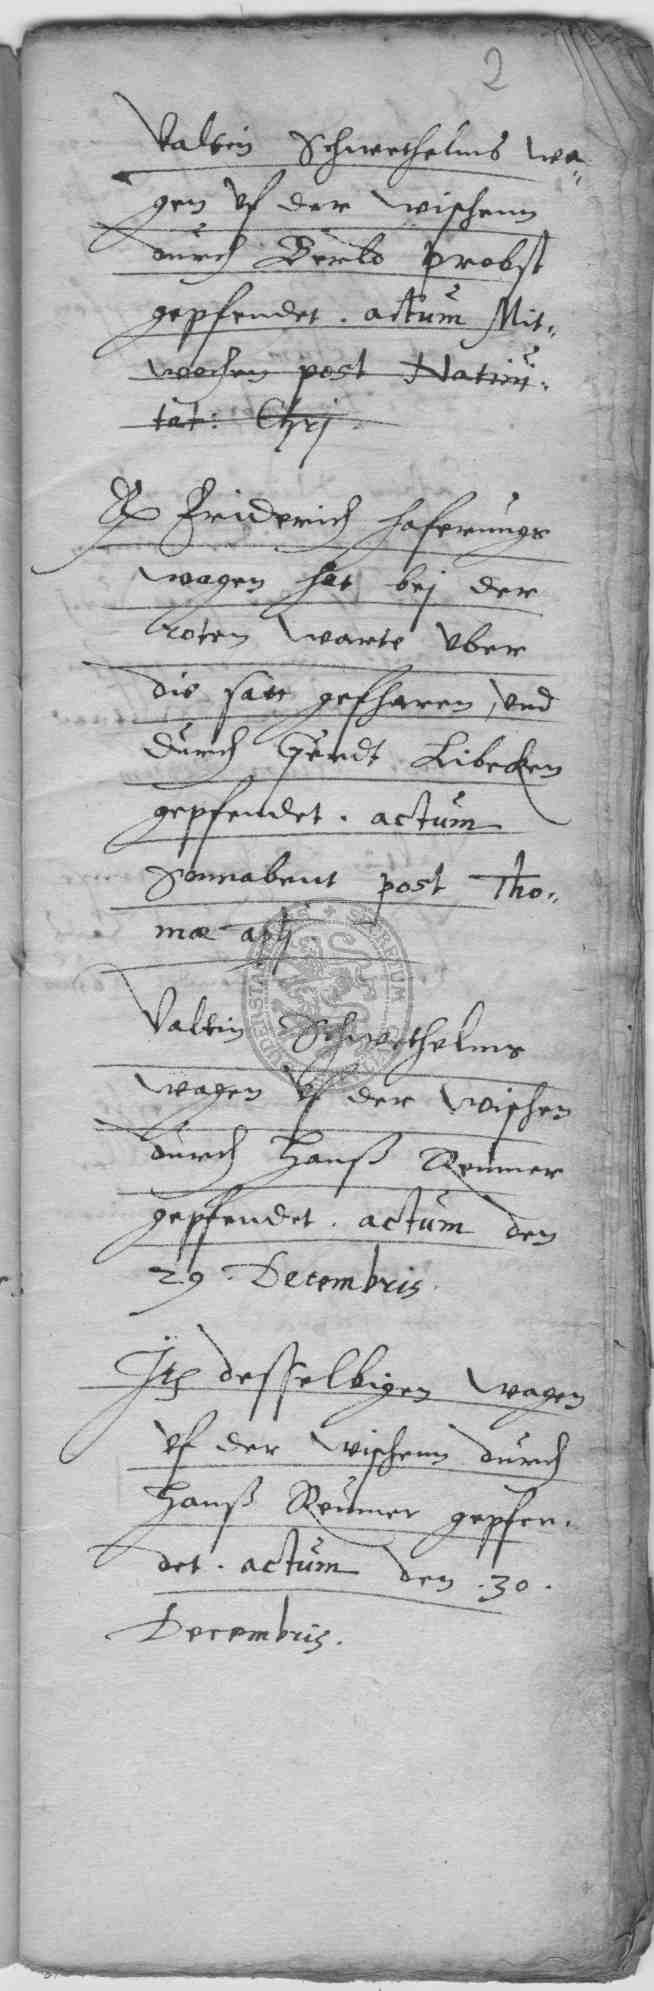 2
Valtin Schwethelms wa„
gen vf der wischenn
durch Berld Probst
gepfendet . actum Mit„
wochen post Natiui„
tat: Chrj .
Friderich Haferungs
wagen hat bej der
roten warte vber
die satt gefharen, vnd
durch Gerdt Libecken
gepfendet . actum
Sonnabent post Tho„
mæ apli
Valtin Schwethelms
wagen vf der wischen
durch Hanß Reumer
gepfendet . actum den
29 . Decembris .
Itē desselbigen wagen
vf der wischenn durch
Hanß Reumer gepfen„
det . actum den .30.
Decembris .